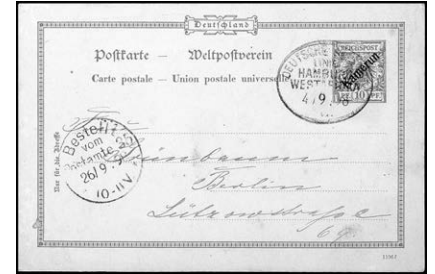 Deutschland
Postkarte — Weltpostverein
Carte postale — Union postale universelle
REICHSPOST
Kamerun
10
DEUTSCHE
LINIE
HAMBURG
WESTAFRIKA
4/9
Bestellt
vom
Postamte
26/9
10-11V.
Berlin
Lützowstraße
69